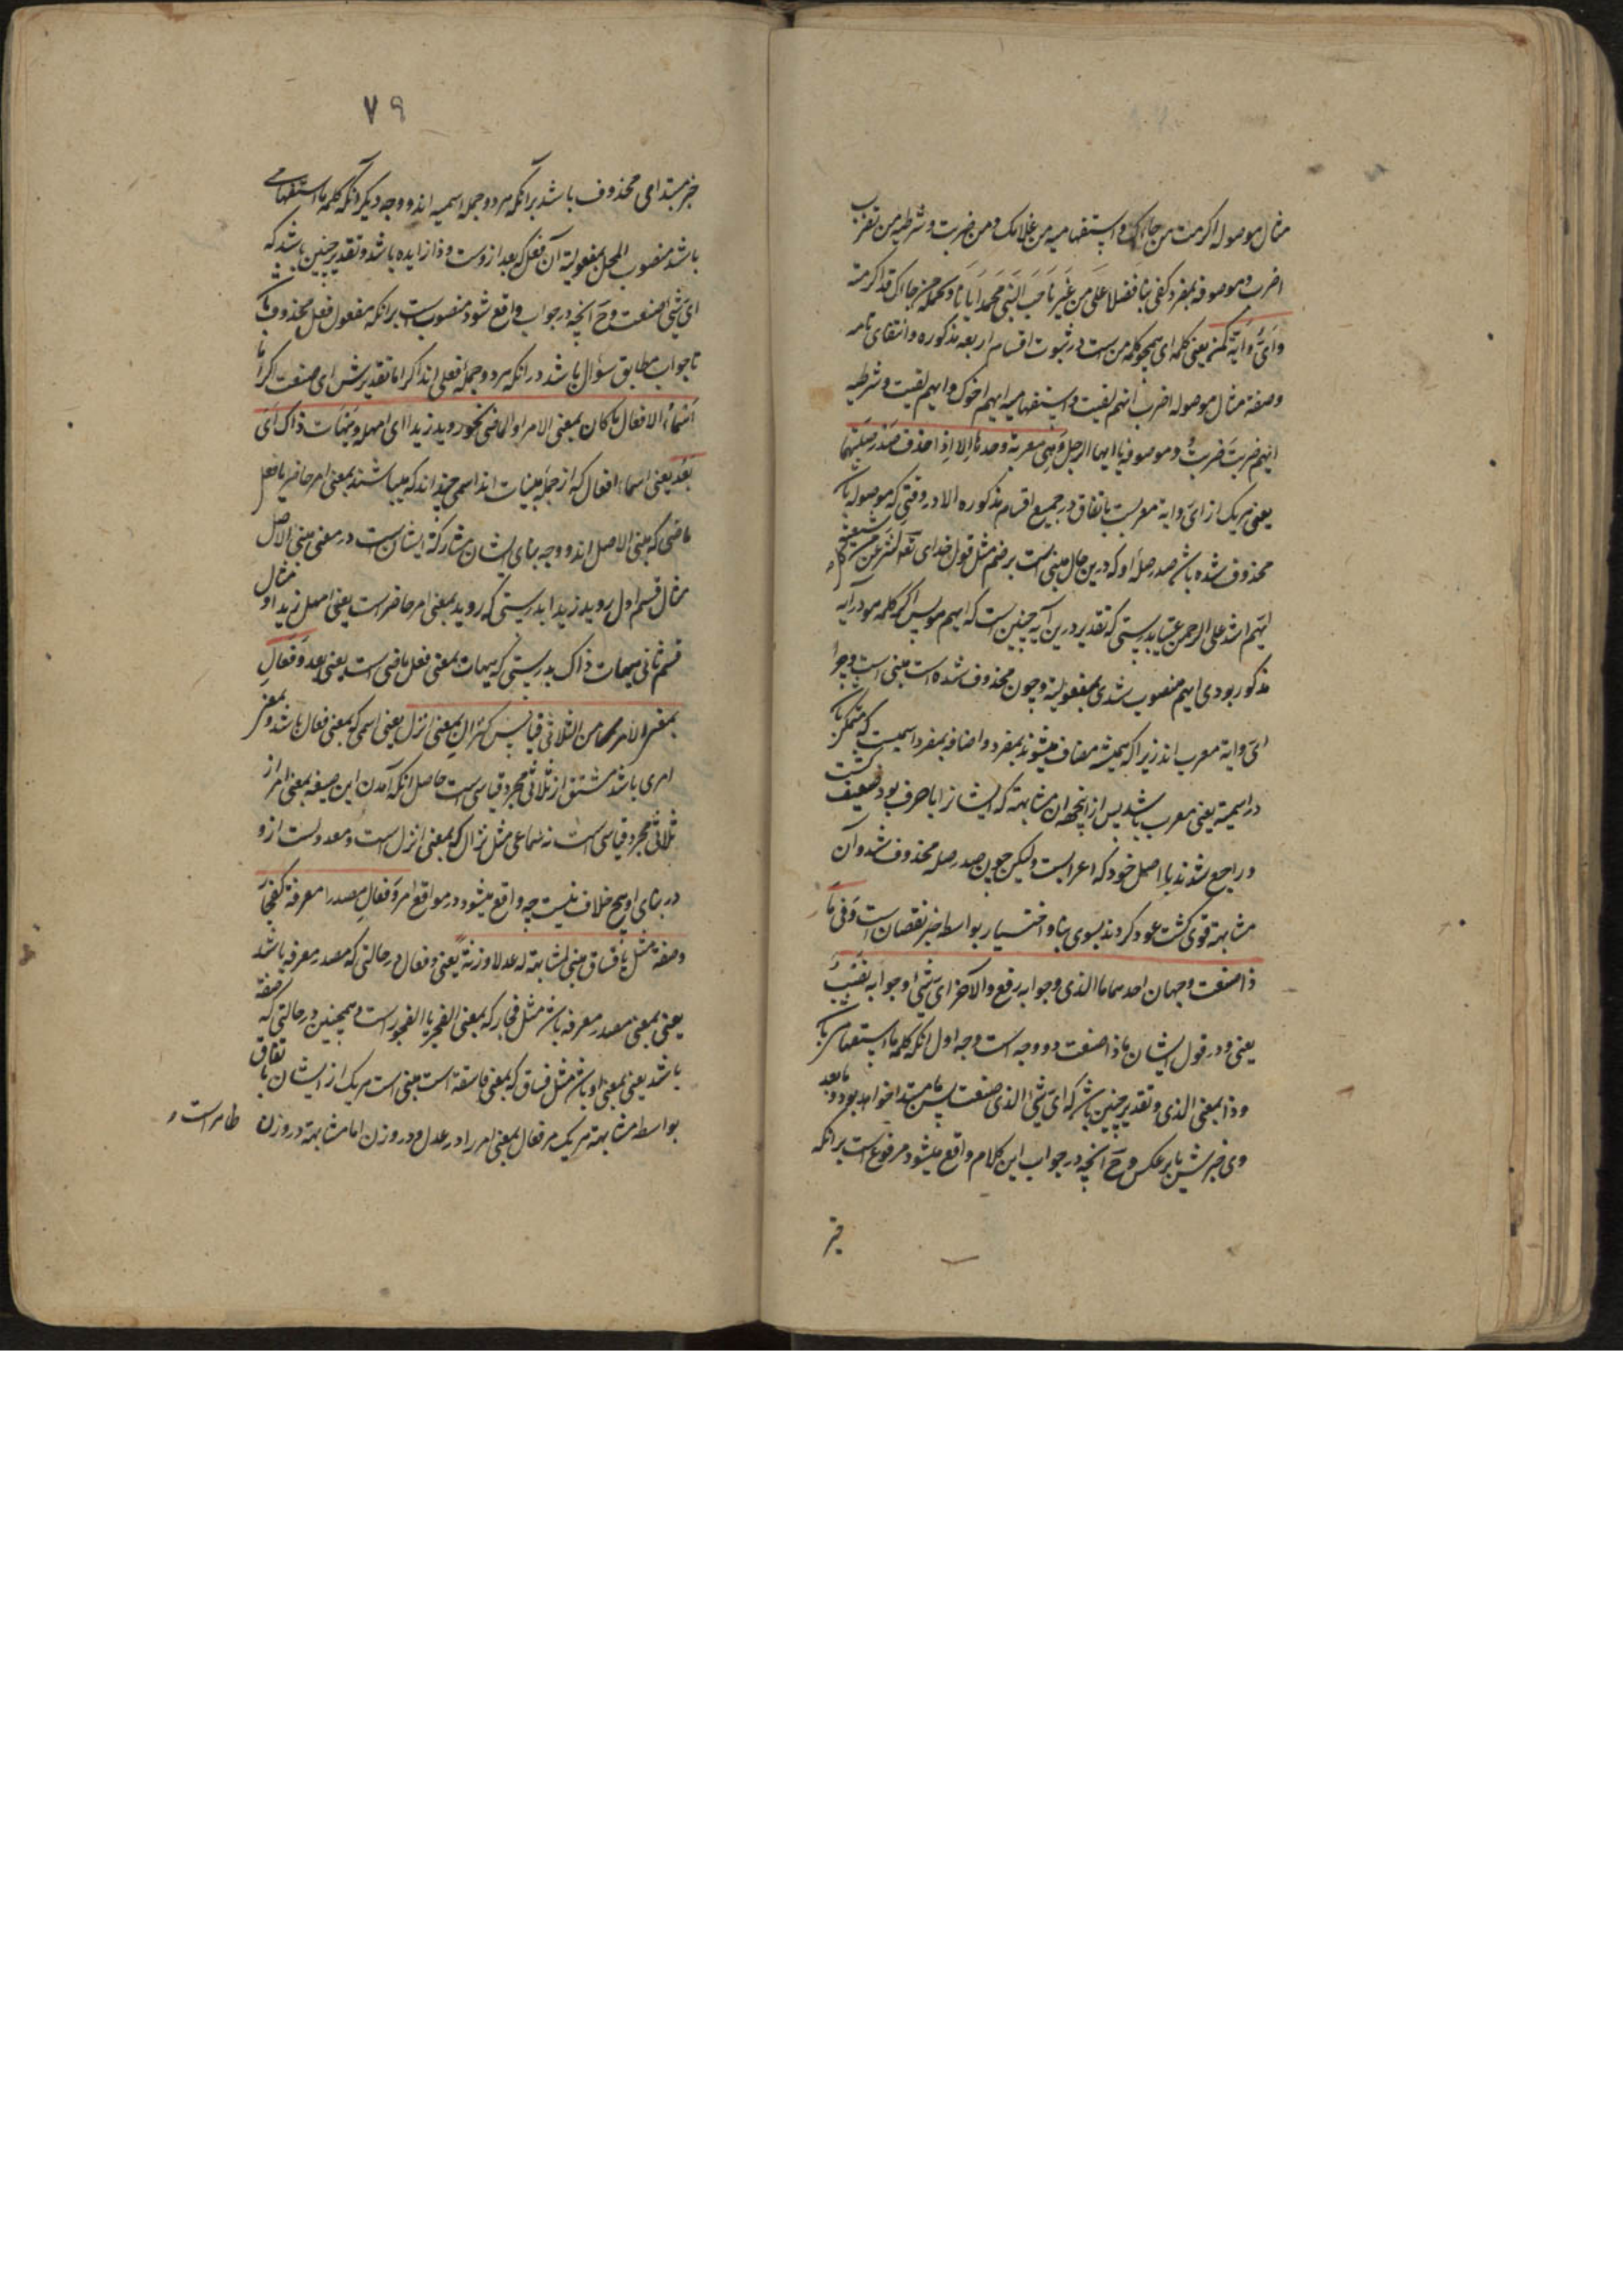 مثال موصوله اکرمت من جاءک و استفهامیه من غلامک و من ضربت و شرطیه من تضرب
اضرب و موصوفه بمفرد کفی بنا فضلا علی من غیرنا حب النبی محمد ایانا و بجمله من جاءک قد اکرمته
و ای و ایة کمن یعنی کلمه ای همچو کلمه من است در ثبوت اقسام اربعه مذکوره و انتفای تامه
و صفة مثال موصوله اضرب ایهم لقیت و استفهامیه ایهم اخوک و ایهم لقیت و شرطیه
ایهم ضربت ضربت و موصوفه یا ایها الرجل و هی معربة وحدها الا اذا حذف صدر صلتها
یعنی هر یک از ای و ایة معربست باتفاق در جمیع اقسام مذکوره الا در وقتی که موصوله باشد
محذوف شده باشد صدر صله او که درین حال مبنی است بر ضم مثل قول خدای تع لننزعن من کل شیعة
ایهم اشد علی الرحمن عتیا بدرستی که تقدیر درین آیه چنین است که ایهم هو پس اگر کلمه هو در آیه
مذکور بودی ایهم منصوب شدی بمفعولیة و چون محذوف شده است مبنی است و چرا
ای و ایة معرب اند زیرا که همیشه مضاف میشوند بمفرد و اضافه بمفرد اسمیست که متمکن باشد
در اسمیة یعنی معرب باشد پس از انجهة ان مشابهة که ایشانرا با حرف بود ضعیف گشت
و راجع شدند با اصل خود که اعرابست و لیکن چون صدر صله محذوف شد و آن
مشابهة قوی گشت عود کردند بسوی بنا و اختیار بواسطه جبر نقصان است و فی ما
ذا صنعت وجهان احدهما ما الذی و جوابه رفع و الاخر ای شئ و جوابه نصب
یعنی و در قول ایشان ماذا صنعت دو وجه است وجه اول انکه کلمه ما استفهامی باشد
و ذا بمعنی الذی و تقدیر چنین باشد که ای شئ الذی صنعت پس ما مبتدا خواهد بود و ما بعد
وی خبرش یا بر عکس و ح آنچه در جواب این کلام واقع میشود مرفوع است بر انکه
خبر
۷۹
خبر مبتدای محذوف باشد بر انکه هر دو جمله اسمیه اند و وجه دیگر انکه کلمه ما استفهامی
باشد منصوب المحل بمفعولیة آن فعل که بعد ازوست و ذا زایده باشد و تقدیر چنین باشد که
ای شئ صنعت و ح آنچه در جواب واقع شود منصوب است بر انکه مفعول فعل محذوف باشد
تا جواب مطابق سؤال باشد در انکه هر دو جمله فعلی اند اکراما تقدیرش ای صنعت اکراما
اسماء الافعال ما کان بمعنی الامر او الماضی نحو روید زیدا ای امهله و هیهات ذاک ای
بعد یعنی اسماء افعال که از جمله مبنیات اند اسمی چند اند که میباشند بمعنی امر حاضر یا فعل
ماضی که مبنی الاصل اند و وجه بنای ایشان مشارکة ایشان است در معنی مبنی الاصل
مثال قسم اول روید زیدا بدرستی که روید بمعنی امر حاضر است یعنی امهل زیدا و مثال
قسم ثانی هیهات ذاک بدرستی که هیهات بمعنی فعل ماضی است یعنی بعد و فعال
بمعنی الامر من الثلاثی قیاس کنزال بمعنی انزل یعنی اسمی که بمعنی فعال باشد و بمعنی
امری باشد مشتق از ثلاثی مجرد قیاسی است حاصل انکه آمدن این صیغه بمعنی امر از
ثلاثی مجرد قیاسی است نه سماعی مثل نزال که بمعنی انزل است و معدولست ازو
در بنای او هیچ خلاف نیست چه واقع میشود در مواقع امر و فعال مصدرا معرفة کفجار
و صفة مثل یا فساق مبنی لمشابهته له عدلا و زنة یعنی و فعال در حالتی که مصدر معرفه باشد
یعنی بمعنی مصدر معرفه باشد مثل فجار که بمعنی الفجرة یا الفجور است و همچنین در حالتی که صفة
باشد یعنی بمعنی او باشد مثل فساق که بمعنی فاسقة است مبنی است هر یک از ایشان باتفاق
بواسطه مشابهة هر یک مر فعال بمعنی امر را در عدل و در وزن اما مشابهة در وزن ظاهر است و